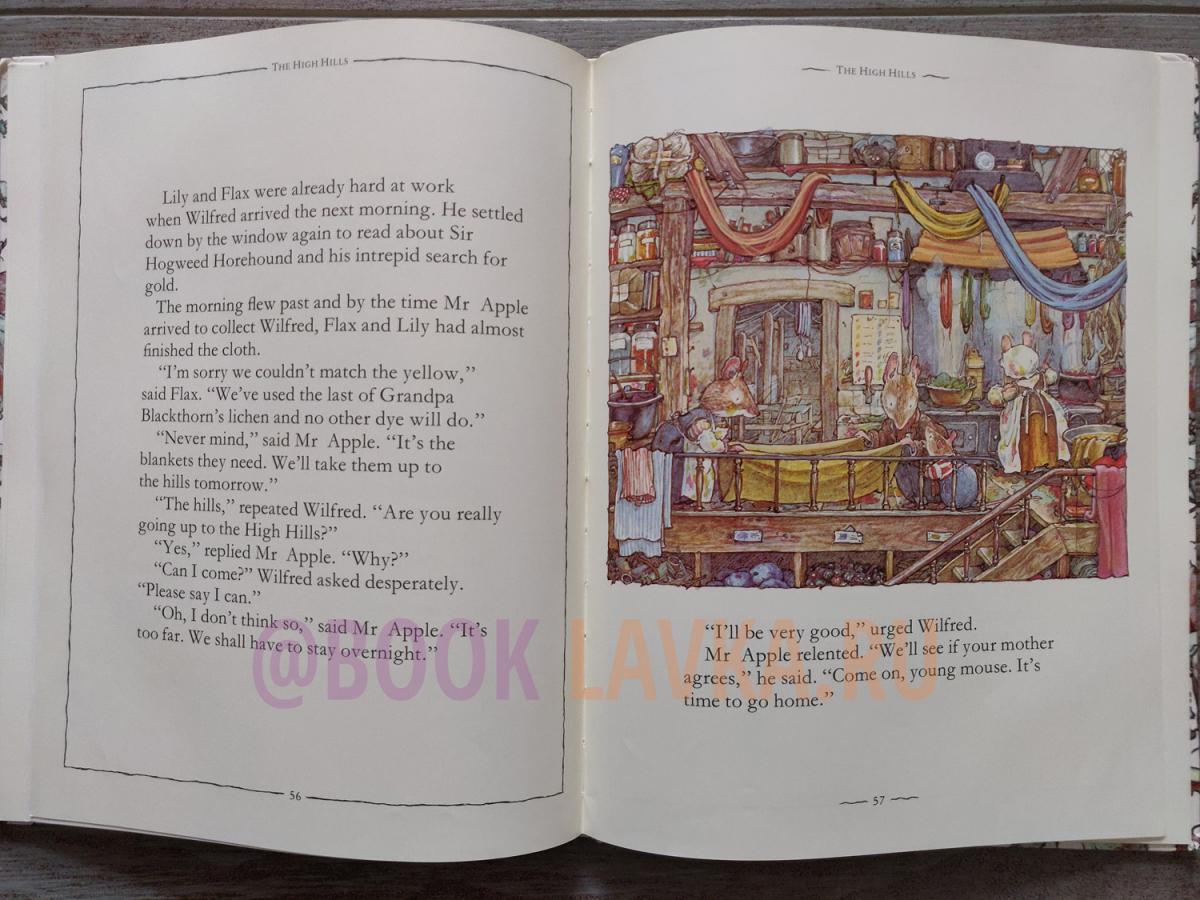 THE HIGH HILLS
Lily and Flax were already hard at work
when Wilfred arrived the next morning. He settled
down by the window again to read about Sir
Hogweed Horehound and his intrepid search for
gold.
The morning flew past and by the time Mr Apple
arrived to collect Wilfred, Flax and Lily had almost
finished the cloth.
“I’m sorry we couldn’t match the yellow,”
said Flax. “We’ve used the last of Grandpa
Blackthorn’s lichen and no other dye will do.”
“Never mind,” said Mr Apple. “It’s the
blankets they need. We’ll take them up to
the hills tomorrow.”
“The hills,” repeated Wilfred. “Are you really
going up to the High Hills?”
“Yes,” replied Mr Apple. “Why?”
“Can I come?” Wilfred asked desperately.
“Please say I can.”
“Oh, I don’t think so,” said Mr Apple. “It’s
too far. We shall have to stay overnight.”
56
THE HIGH HILLS
“I’ll be very good,” urged Wilfred.
Mr Apple relented. “We’ll see if your mother
agrees,” he said. “Come on, young mouse. It’s
time to go home.”
57
@BOOK LAVKA.RU